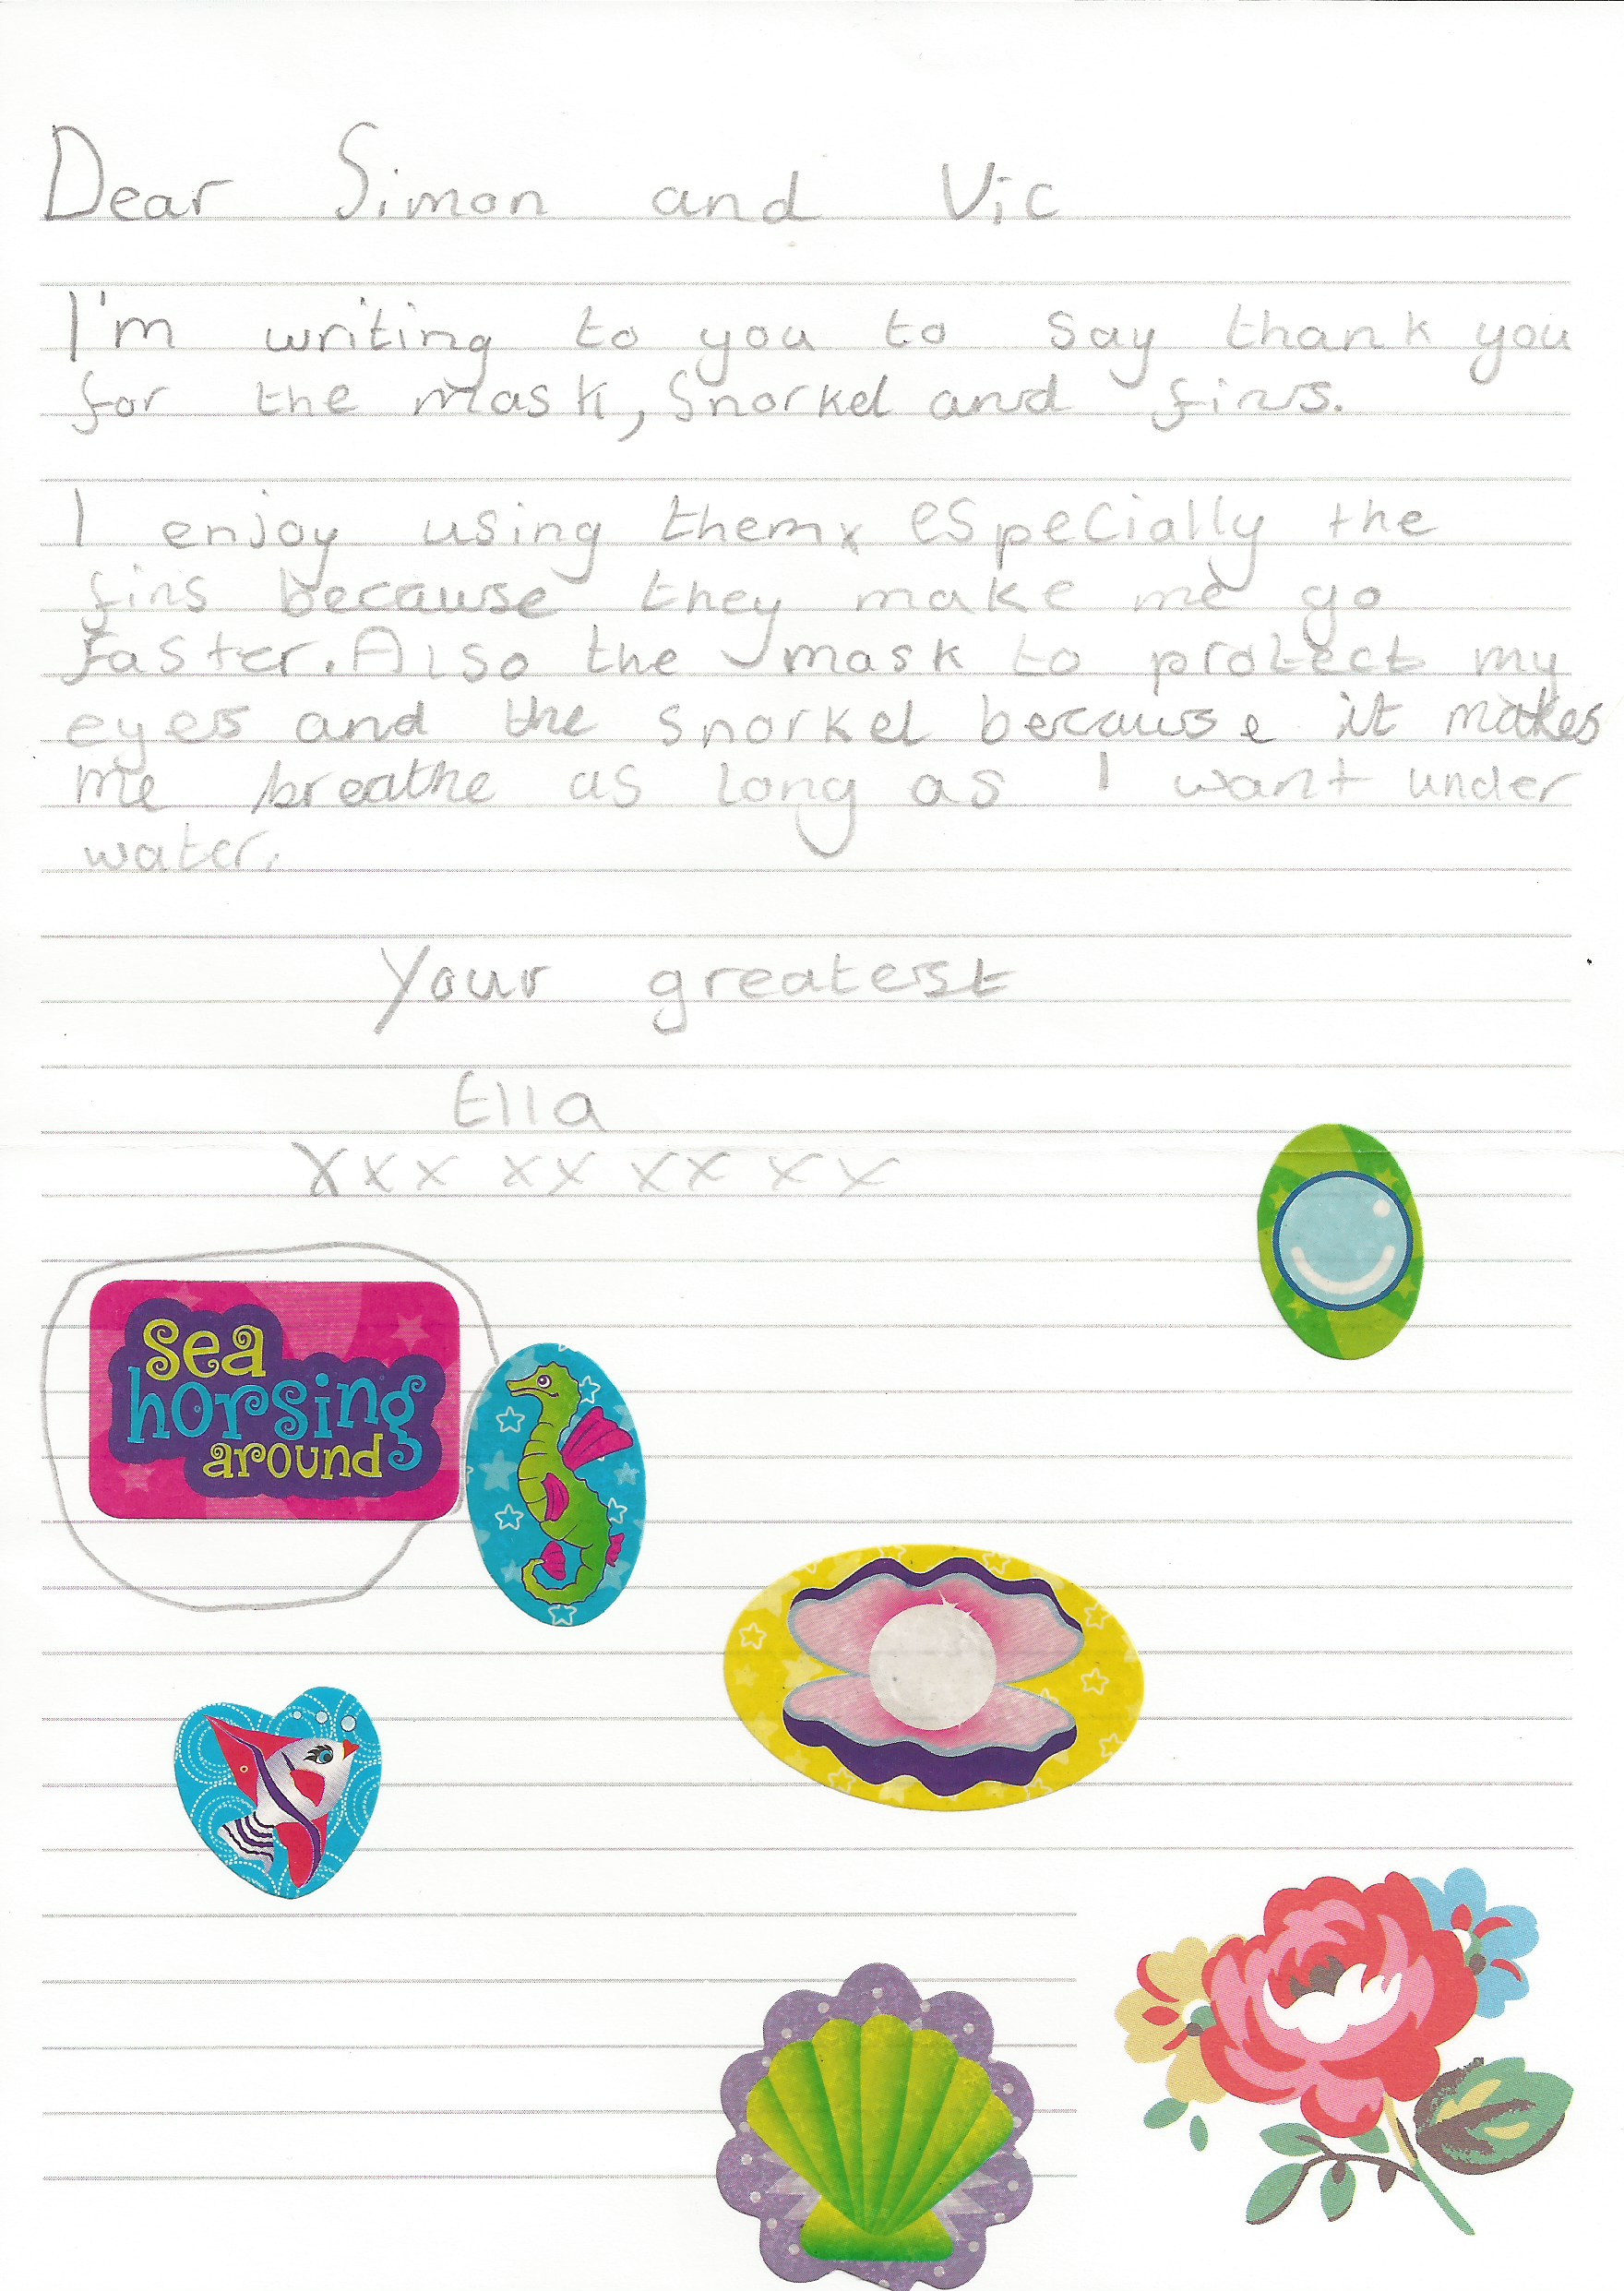 Dear Simon and Vic
I'm writing to you to say thank you
for the mask, Snorkel and fins.
I enjoy using themx especially the
fins because they make me go
Faster. Also the mask to protect my
eyes and the snorkel because it makes
me breathe as long as I want under
water.
Your greatest
Ella
xxx xx xx xx
sea
horsing
around